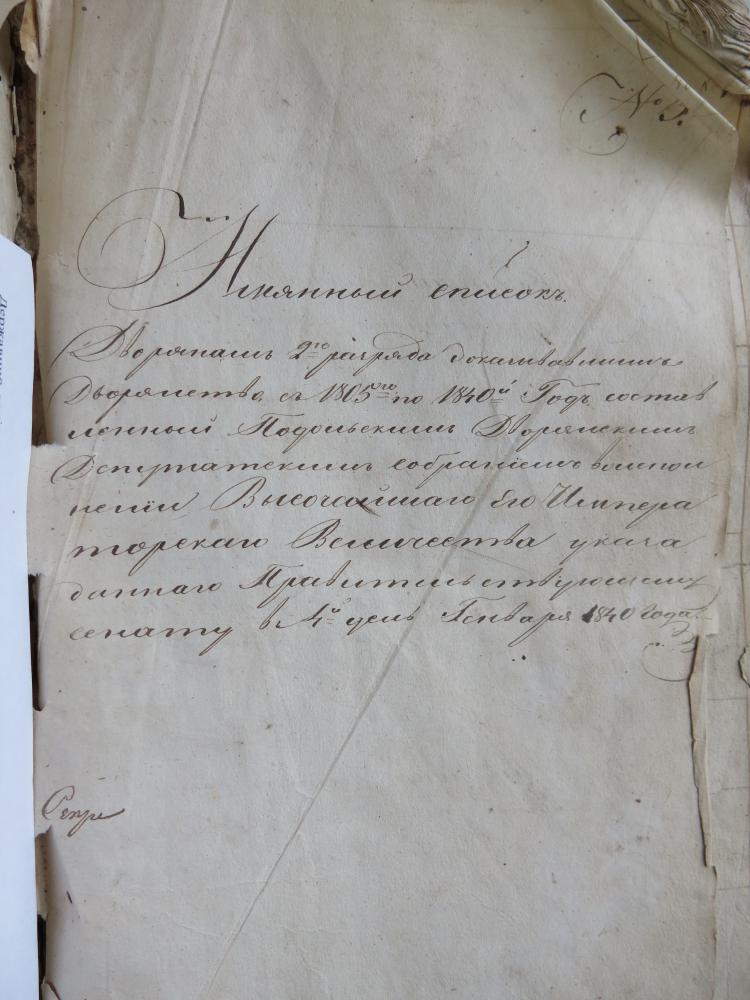 № 13.
Имянный списокъ
Дворянамъ 2го разряда доказывавшимъ
Дворянство, съ 1805го по 1840й Годъ состав
ленный Подольскимъ Дворянскимъ
Депутатскимъ собраніемъ во испол
неніи Высочайшаго Его Импера
торскаго Величества указа
даннаго Правительствующему
сенату в 4й день Генваря 1840 года